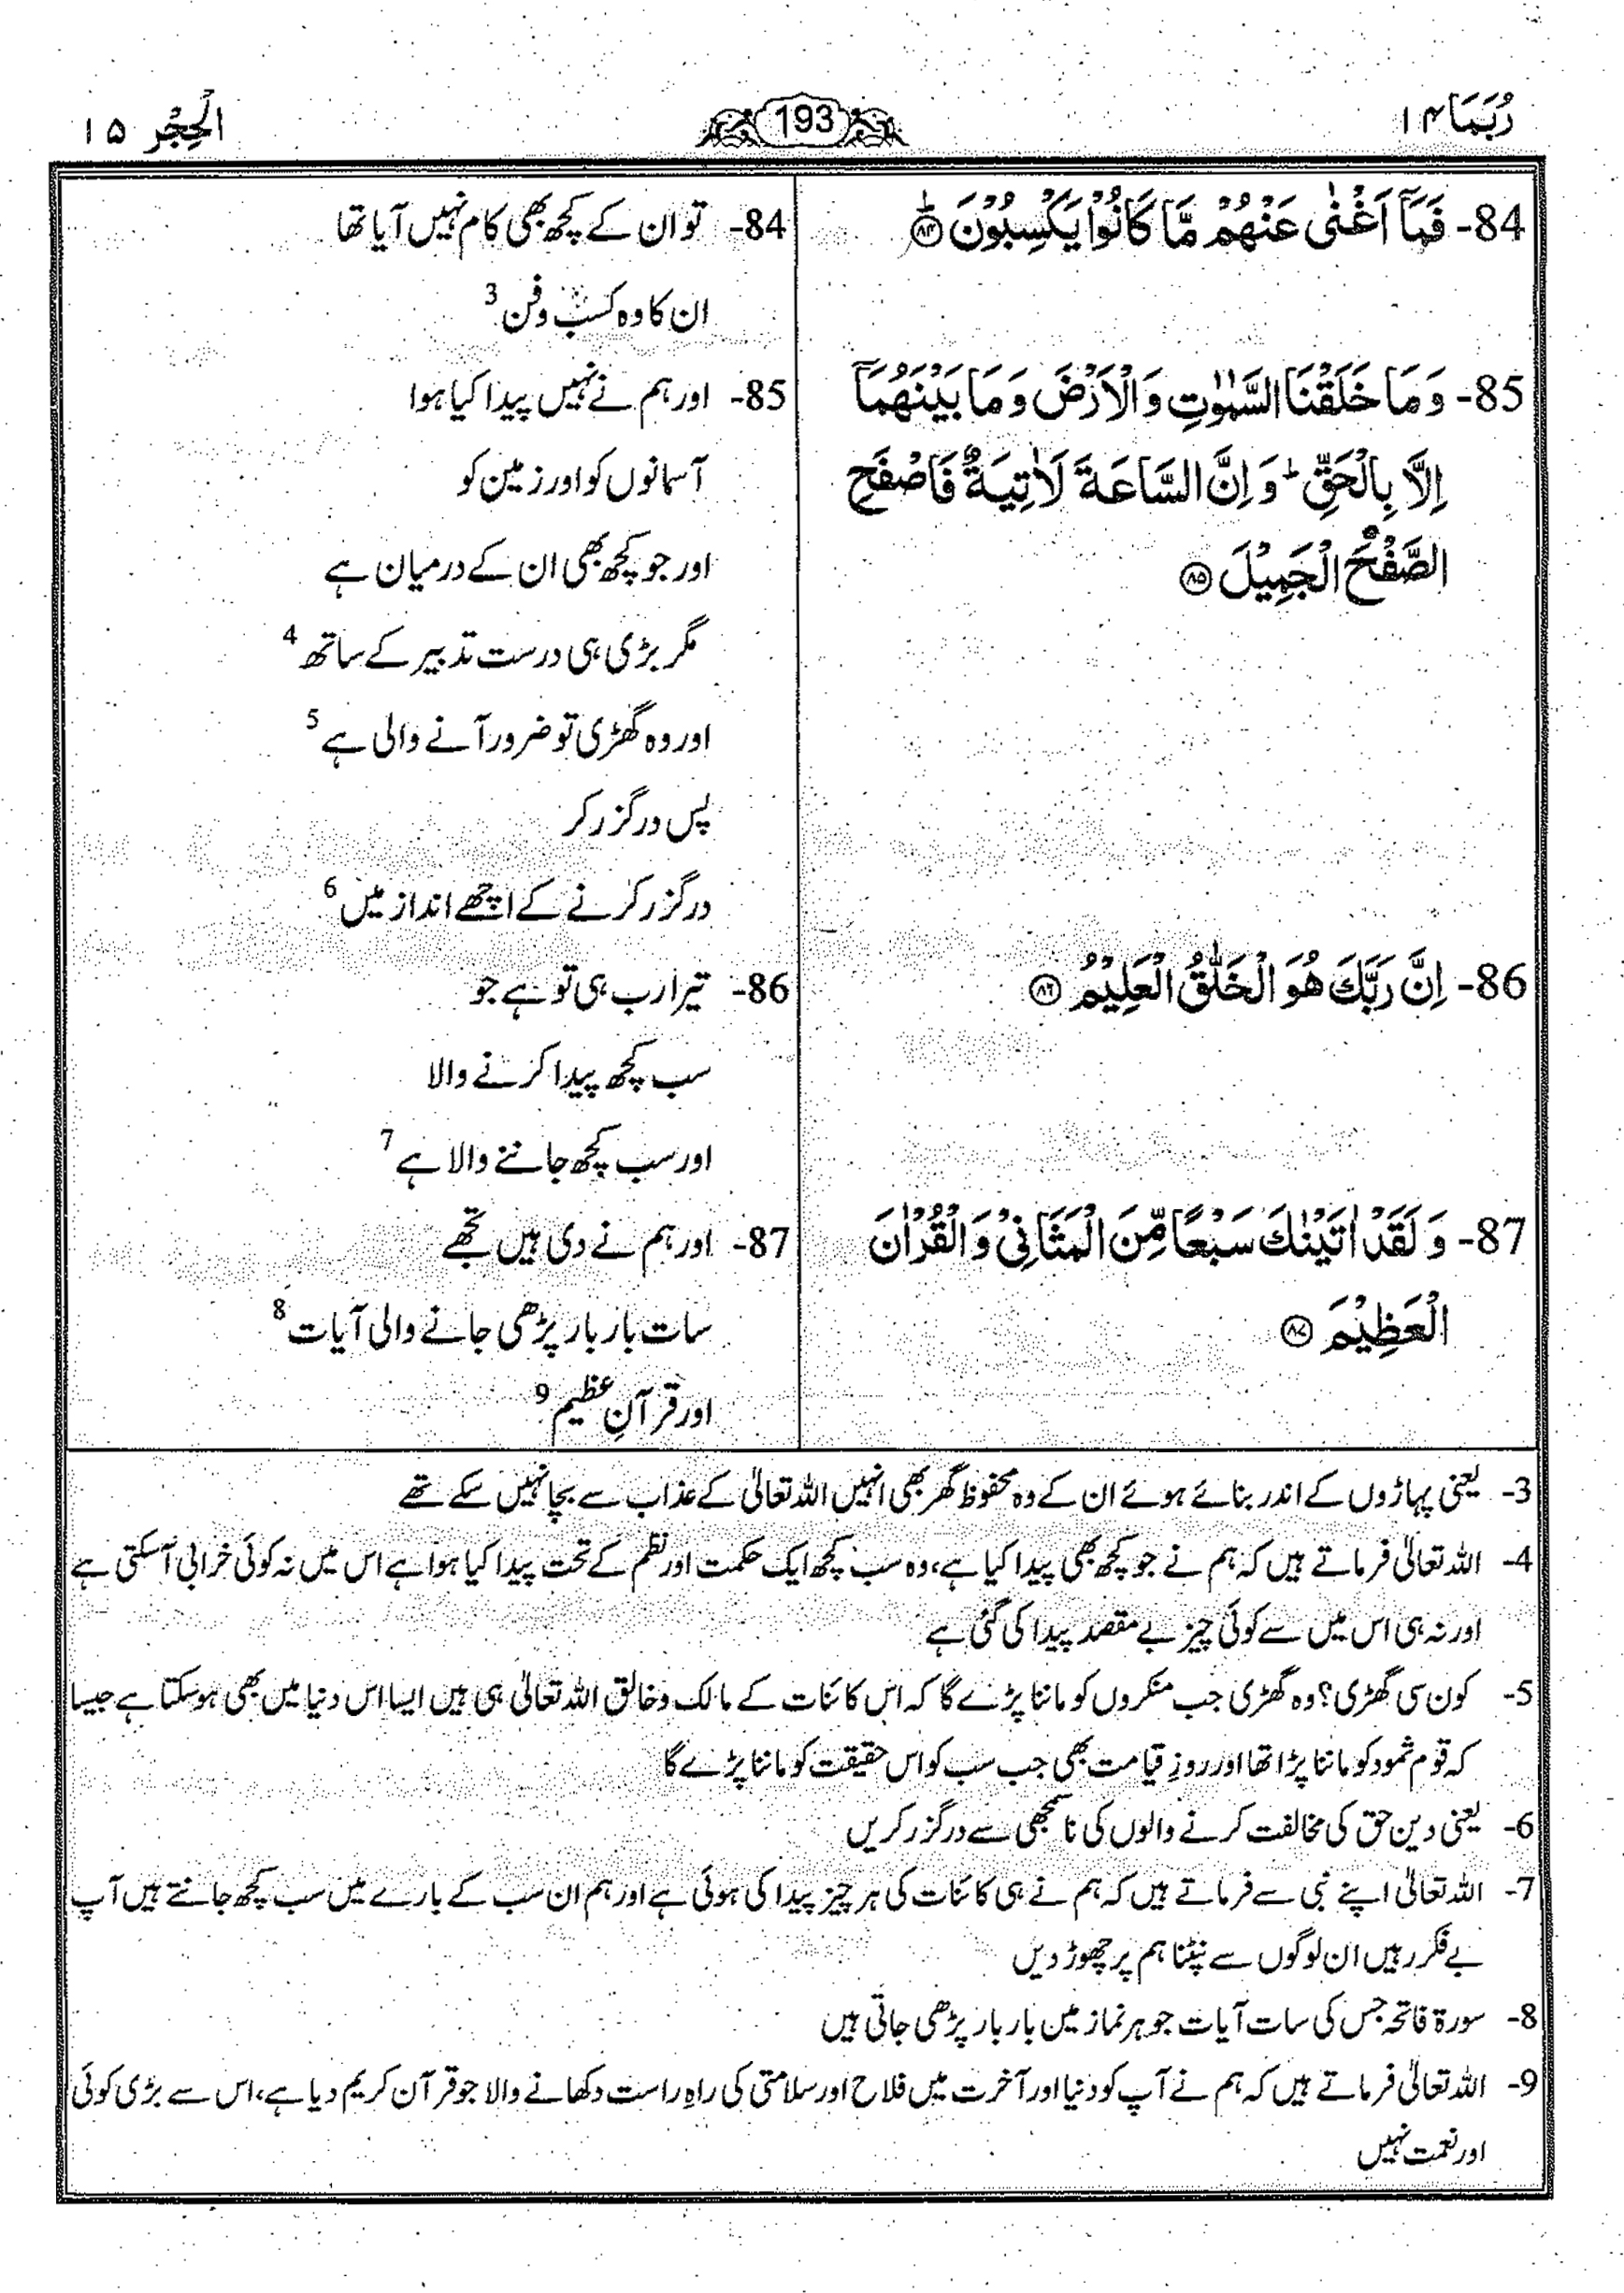 رُبَمَا ۱۴
193
الْحِجْر ۱۵
84- فَمَآ اَغْنٰى عَنْهُمْ مَّا كَانُوْا يَكْسِبُوْنَ ؕ۝۸۴
85- وَمَا خَلَقْنَا السَّمٰوٰتِ وَالْاَرْضَ وَمَا بَيْنَهُمَآ
اِلَّا بِالْحَقِّ ؕ وَاِنَّ السَّاعَةَ لَاٰتِيَةٌ فَاصْفَحِ
الصَّفْحَ الْجَمِيْلَ ۝۸۵
86- اِنَّ رَبَّكَ هُوَ الْخَلّٰقُ الْعَلِيْمُ ۝۸۶
87- وَلَقَدْ اٰتَيْنٰكَ سَبْعًا مِّنَ الْمَثَانِيْ وَالْقُرْاٰنَ
الْعَظِيْمَ ۝۸۷
84- تو ان کے کچھ بھی کام نہیں آیا تھا
ان کا وہ کسب و فن 3
85- اور ہم نے نہیں پیدا کیا ہوا
آسمانوں کو اور زمین کو
اور جو کچھ بھی ان کے درمیان ہے
مگر بڑی ہی درست تدبیر کے ساتھ 4
اور وہ گھڑی تو ضرور آنے والی ہے 5
پس درگزر کر
درگزر کرنے کے اچھے انداز میں 6
86- تیرا رب ہی تو ہے جو
سب کچھ پیدا کرنے والا
اور سب کچھ جاننے والا ہے 7
87- اور ہم نے دی ہیں تجھے
سات بار بار پڑھی جانے والی آیات 8
اور قرآنِ عظیم 9
3- یعنی پہاڑوں کے اندر بنائے ہوئے ان کے وہ محفوظ گھر بھی انہیں اللہ تعالیٰ کے عذاب سے بچا نہیں سکے تھے
4- اللہ تعالیٰ فرماتے ہیں کہ ہم نے جو کچھ بھی پیدا کیا ہے، وہ سب کچھ ایک حکمت اور نظم کے تحت پیدا کیا ہوا ہے اس میں نہ کوئی خرابی آ سکتی ہے
اور نہ ہی اس میں سے کوئی چیز بے مقصد پیدا کی گئی ہے
5- کون سی گھڑی؟ وہ گھڑی جب منکروں کو ماننا پڑے گا کہ اس کائنات کے مالک و خالق اللہ تعالیٰ ہی ہیں ایسا اس دنیا میں بھی ہوسکتا ہے جیسا
کہ قوم ثمود کو ماننا پڑا تھا اور روزِ قیامت بھی جب سب کو اس حقیقت کو ماننا پڑے گا
6- یعنی دین حق کی مخالفت کرنے والوں کی ناسمجھی سے درگزر کریں
7- اللہ تعالیٰ اپنے نبی سے فرماتے ہیں کہ ہم نے ہی کائنات کی ہر چیز پیدا کی ہوئی ہے اور ہم ان سب کے بارے میں سب کچھ جانتے ہیں آپ
بے فکر رہیں ان لوگوں سے نپٹنا ہم پر چھوڑ دیں
8- سورۃ فاتحہ جس کی سات آیات جو ہر نماز میں بار بار پڑھی جاتی ہیں
9- اللہ تعالیٰ فرماتے ہیں کہ ہم نے آپ کو دنیا اور آخرت میں فلاح اور سلامتی کی راہِ راست دکھانے والا جو قرآن کریم دیا ہے، اس سے بڑی کوئی
اور نعمت نہیں